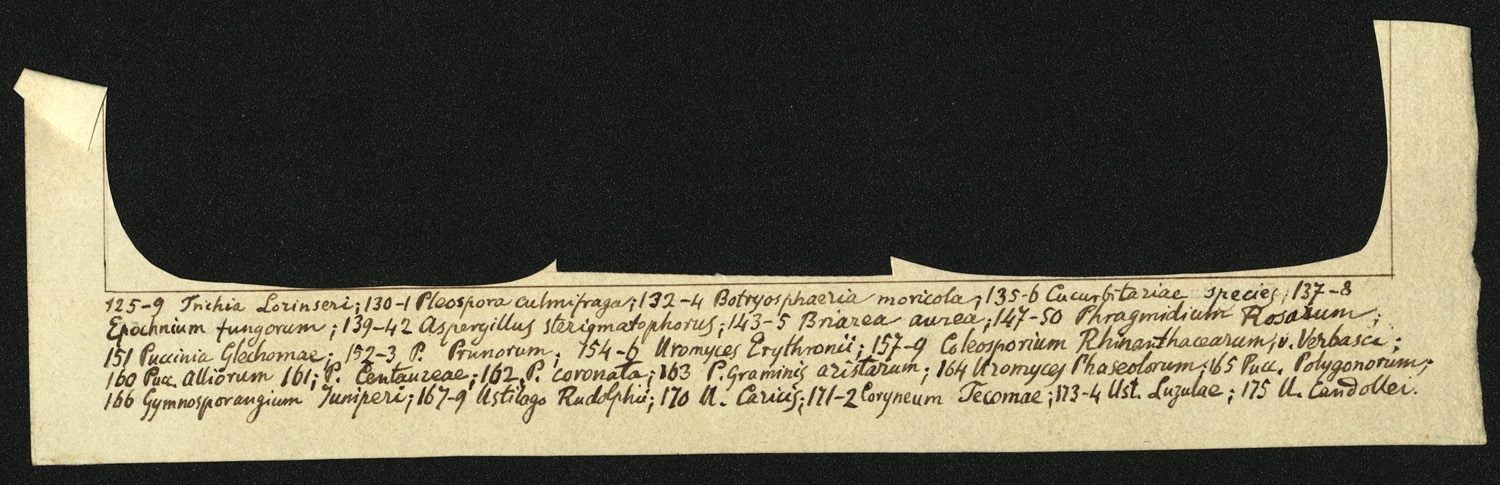 125-9 Trichia Lorinseri; 130-1 Pleospora culmifraga; 132-4 Botryosphaeria moricola; 135-6 Cucurbitariae species; 137-8
Epochnium fungorum; 139-42 Aspergillus sterigmatophorus; 143-5 Briarea aurea; 147-50 Phragmidium Rosarum;
151 Puccinia Glechomae; 152-3 P. Prunorum; 154-6 Uromyces Erythronii; 157-9 Coleosporium Rhinanthacearum, v. Verbasci;
160 Pucc. Alliorum 161; P. Centaureae; 162, P. coronata; 163 P. Graminis aristarum; 164 Uromyces Phaseolorum; 165 Pucc. Polygonorum;
166 Gymnosporangium Juniperi; 167-9 Ustilago Rudolphii; 170 U. Caricis; 171-2 Coryneum Tecomae; 173-4 Ust. Luzulae; 175 U. Candollei.